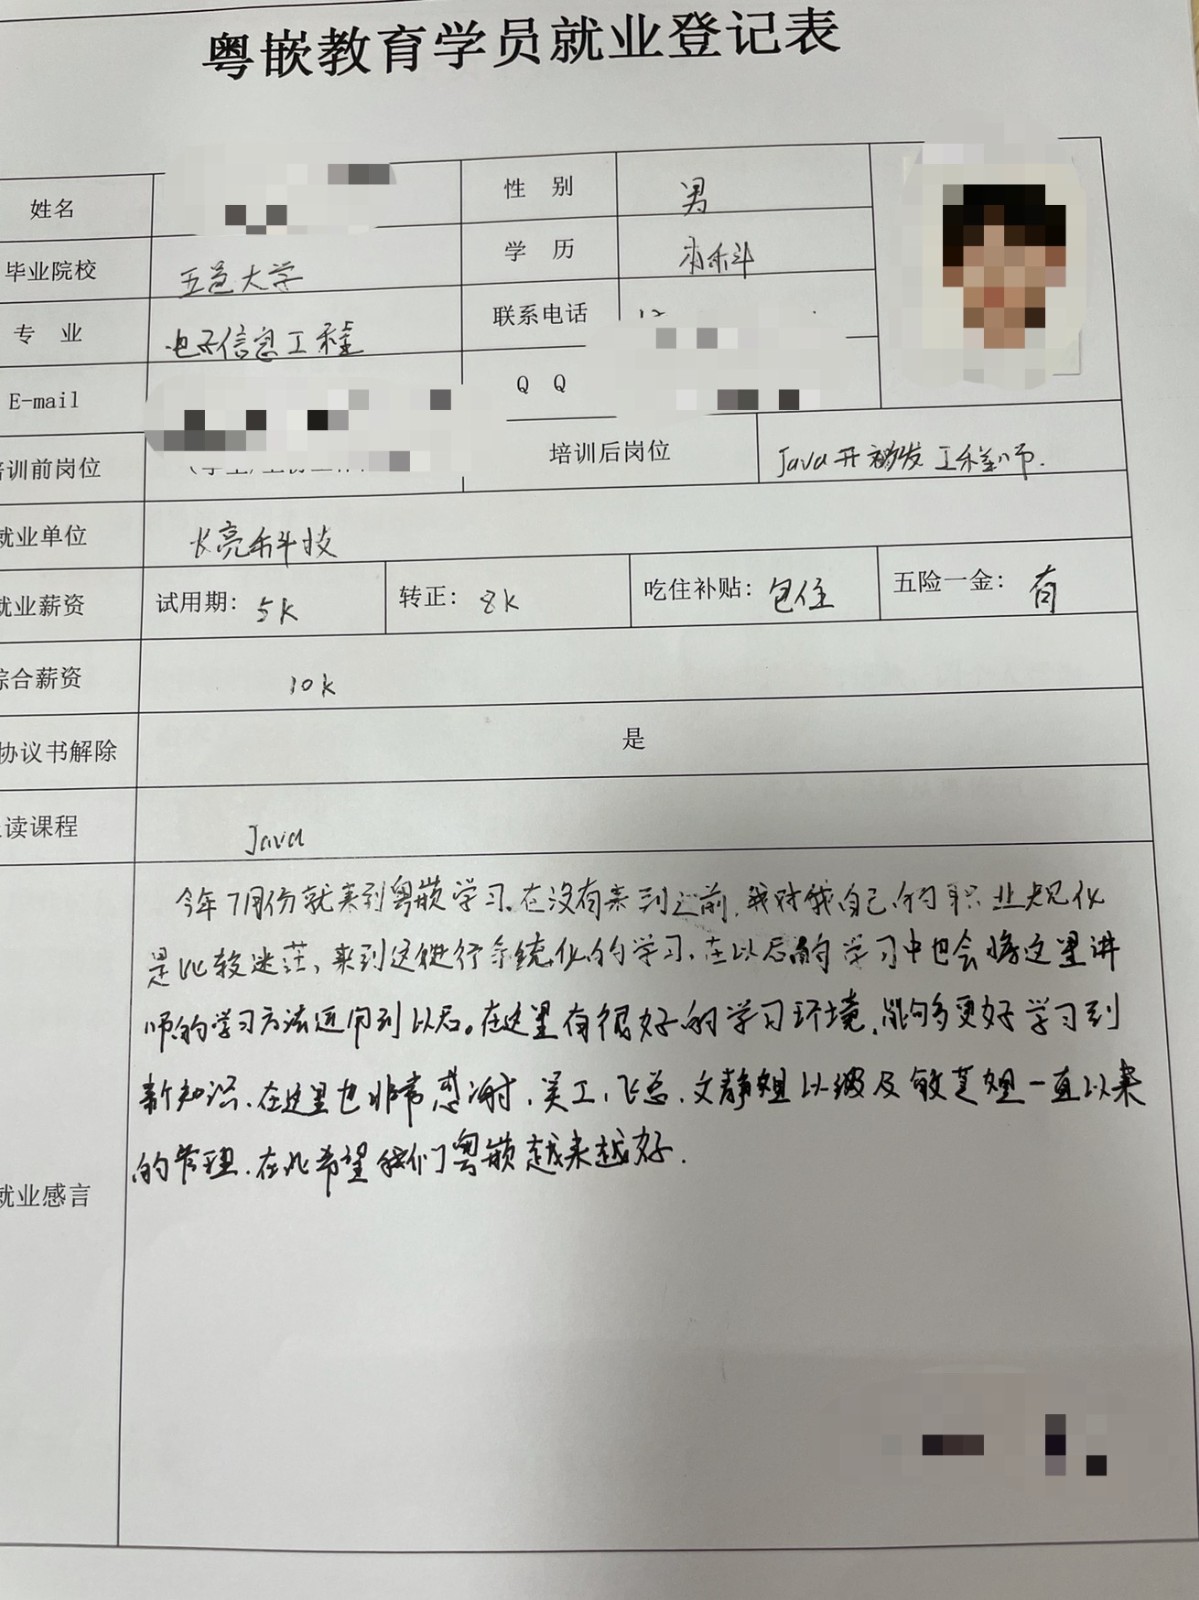 粤嵌教育学员就业登记表
姓名 性 别 男
毕业院校 五邑大学 学 历 本科
专 业 电子信息工程 联系电话
E-mail Q Q
培训前岗位 培训后岗位 Java开发工程师.
就业单位 长亮科技
就业薪资 试用期: 5k 转正: 8k 吃住补贴: 包住 五险一金: 有
综合薪资 10k
协议书解除 是
读课程 Java
就业感言
今年7月份就来到粤嵌学习,在没有来到之前,我对我自己的职业规化
是比较迷茫,来到这进行系统化的学习,在以后的学习中也会将这里讲
师的学习方法运用到以后。在这里有很好的学习环境,能够多更好学习到
新知识,在这里也非常感谢,吴工,飞总,文静姐以及敏芝姐一直以来
的管理,在此希望我们粤嵌越来越好.